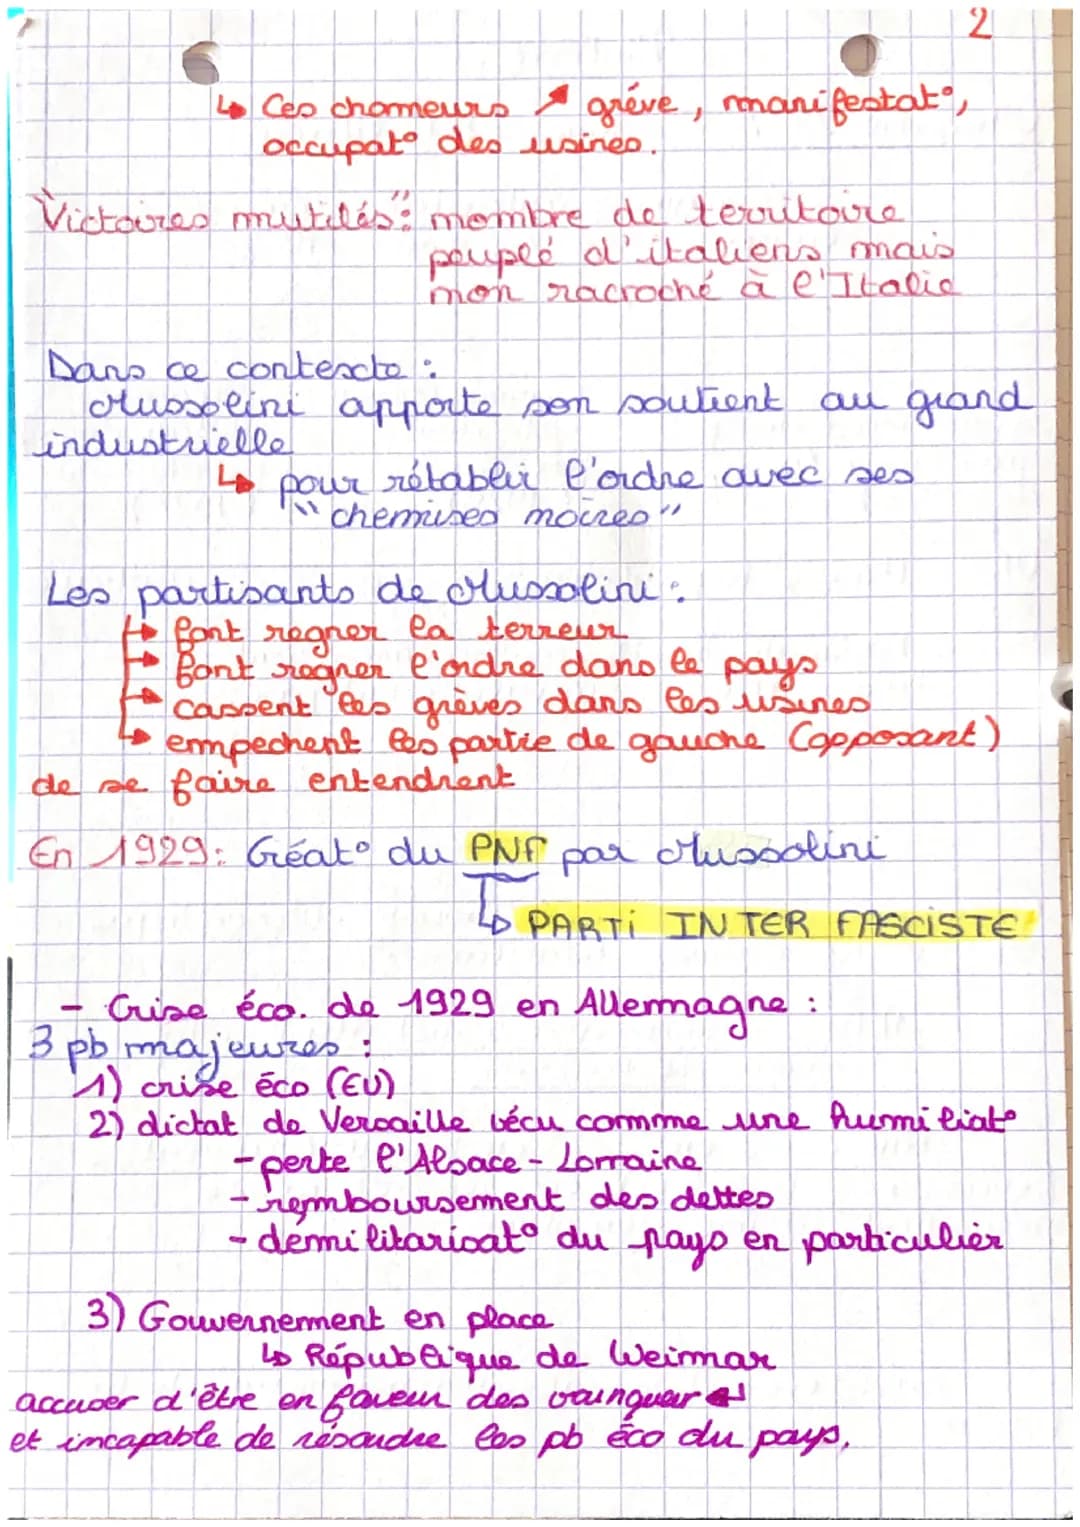 2
↳ Ces chomeurs ↗ gréve, manifestat°,
occupat° des usines.
"Victoires mutilés": nombre de territoire
peuplé d'italiens mais
non racroché à l'Italie
Dans ce contexte :
Mussolini apporte son soutient au grand
industrielle
↳ pour rétablir l'ordre avec ses
"chemises noires"
Les partisants de Mussolini :
↳ font regner la terreur
→ font regner l'ordre dans le pays
→ cassent les grèves dans les usines
↳ empechent les partie de gauche (opposant)
de se faire entendrent
En 1929: Créat° du PNF par Mussolini
↳ PARTI INTER FASCISTE
- Crise éco. de 1929 en Allemagne :
3 pb majeures :
1) crise éco (EU)
2) dictat de Versaille vécu comme une humiliat°
- perte l'Alsace - Lorraine
- remboursement des dettes
- demilitarisat° du pays en particulier
3) Gouvernement en place
↳ République de Weimar
accuser d'être en faveur des vainqueur
et incapable de résoudre les pb éco du pays.